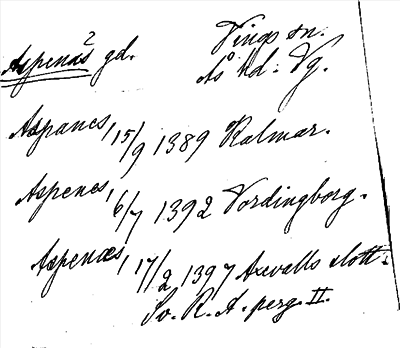 Aspenäs 2 gd. Vings sn.
Ås hd. Vg.
Aspanes, 15/9 1389 Kalmar.
Aspenes, 6/7 1392 Vordingborg.
Aspenæs, 17/2 1397 Axvalls slott.
Sv. R. A. perg. II.